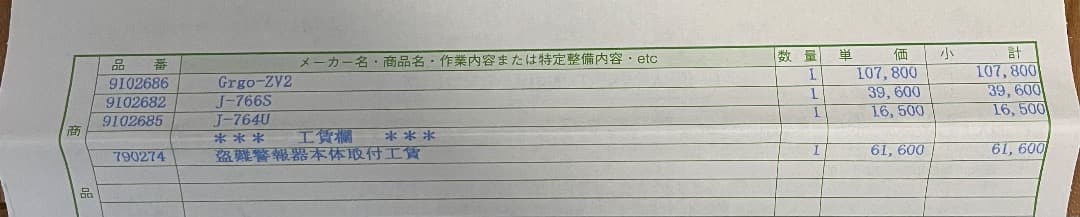 品 番 メーカー名・商品名・作業内容または特定整備内容・etc 数・量 単 価 小 計
9102686 Grgo-ZV2 1 107,800 107,800
9102682 J-766S 1 39,600 39,600
9102685 J-764U 1 16,500 16,500
商
＊＊＊ 工賃欄 ＊＊＊
790274 盗難警報器本体取付工賃 1 61,600 61,600
品